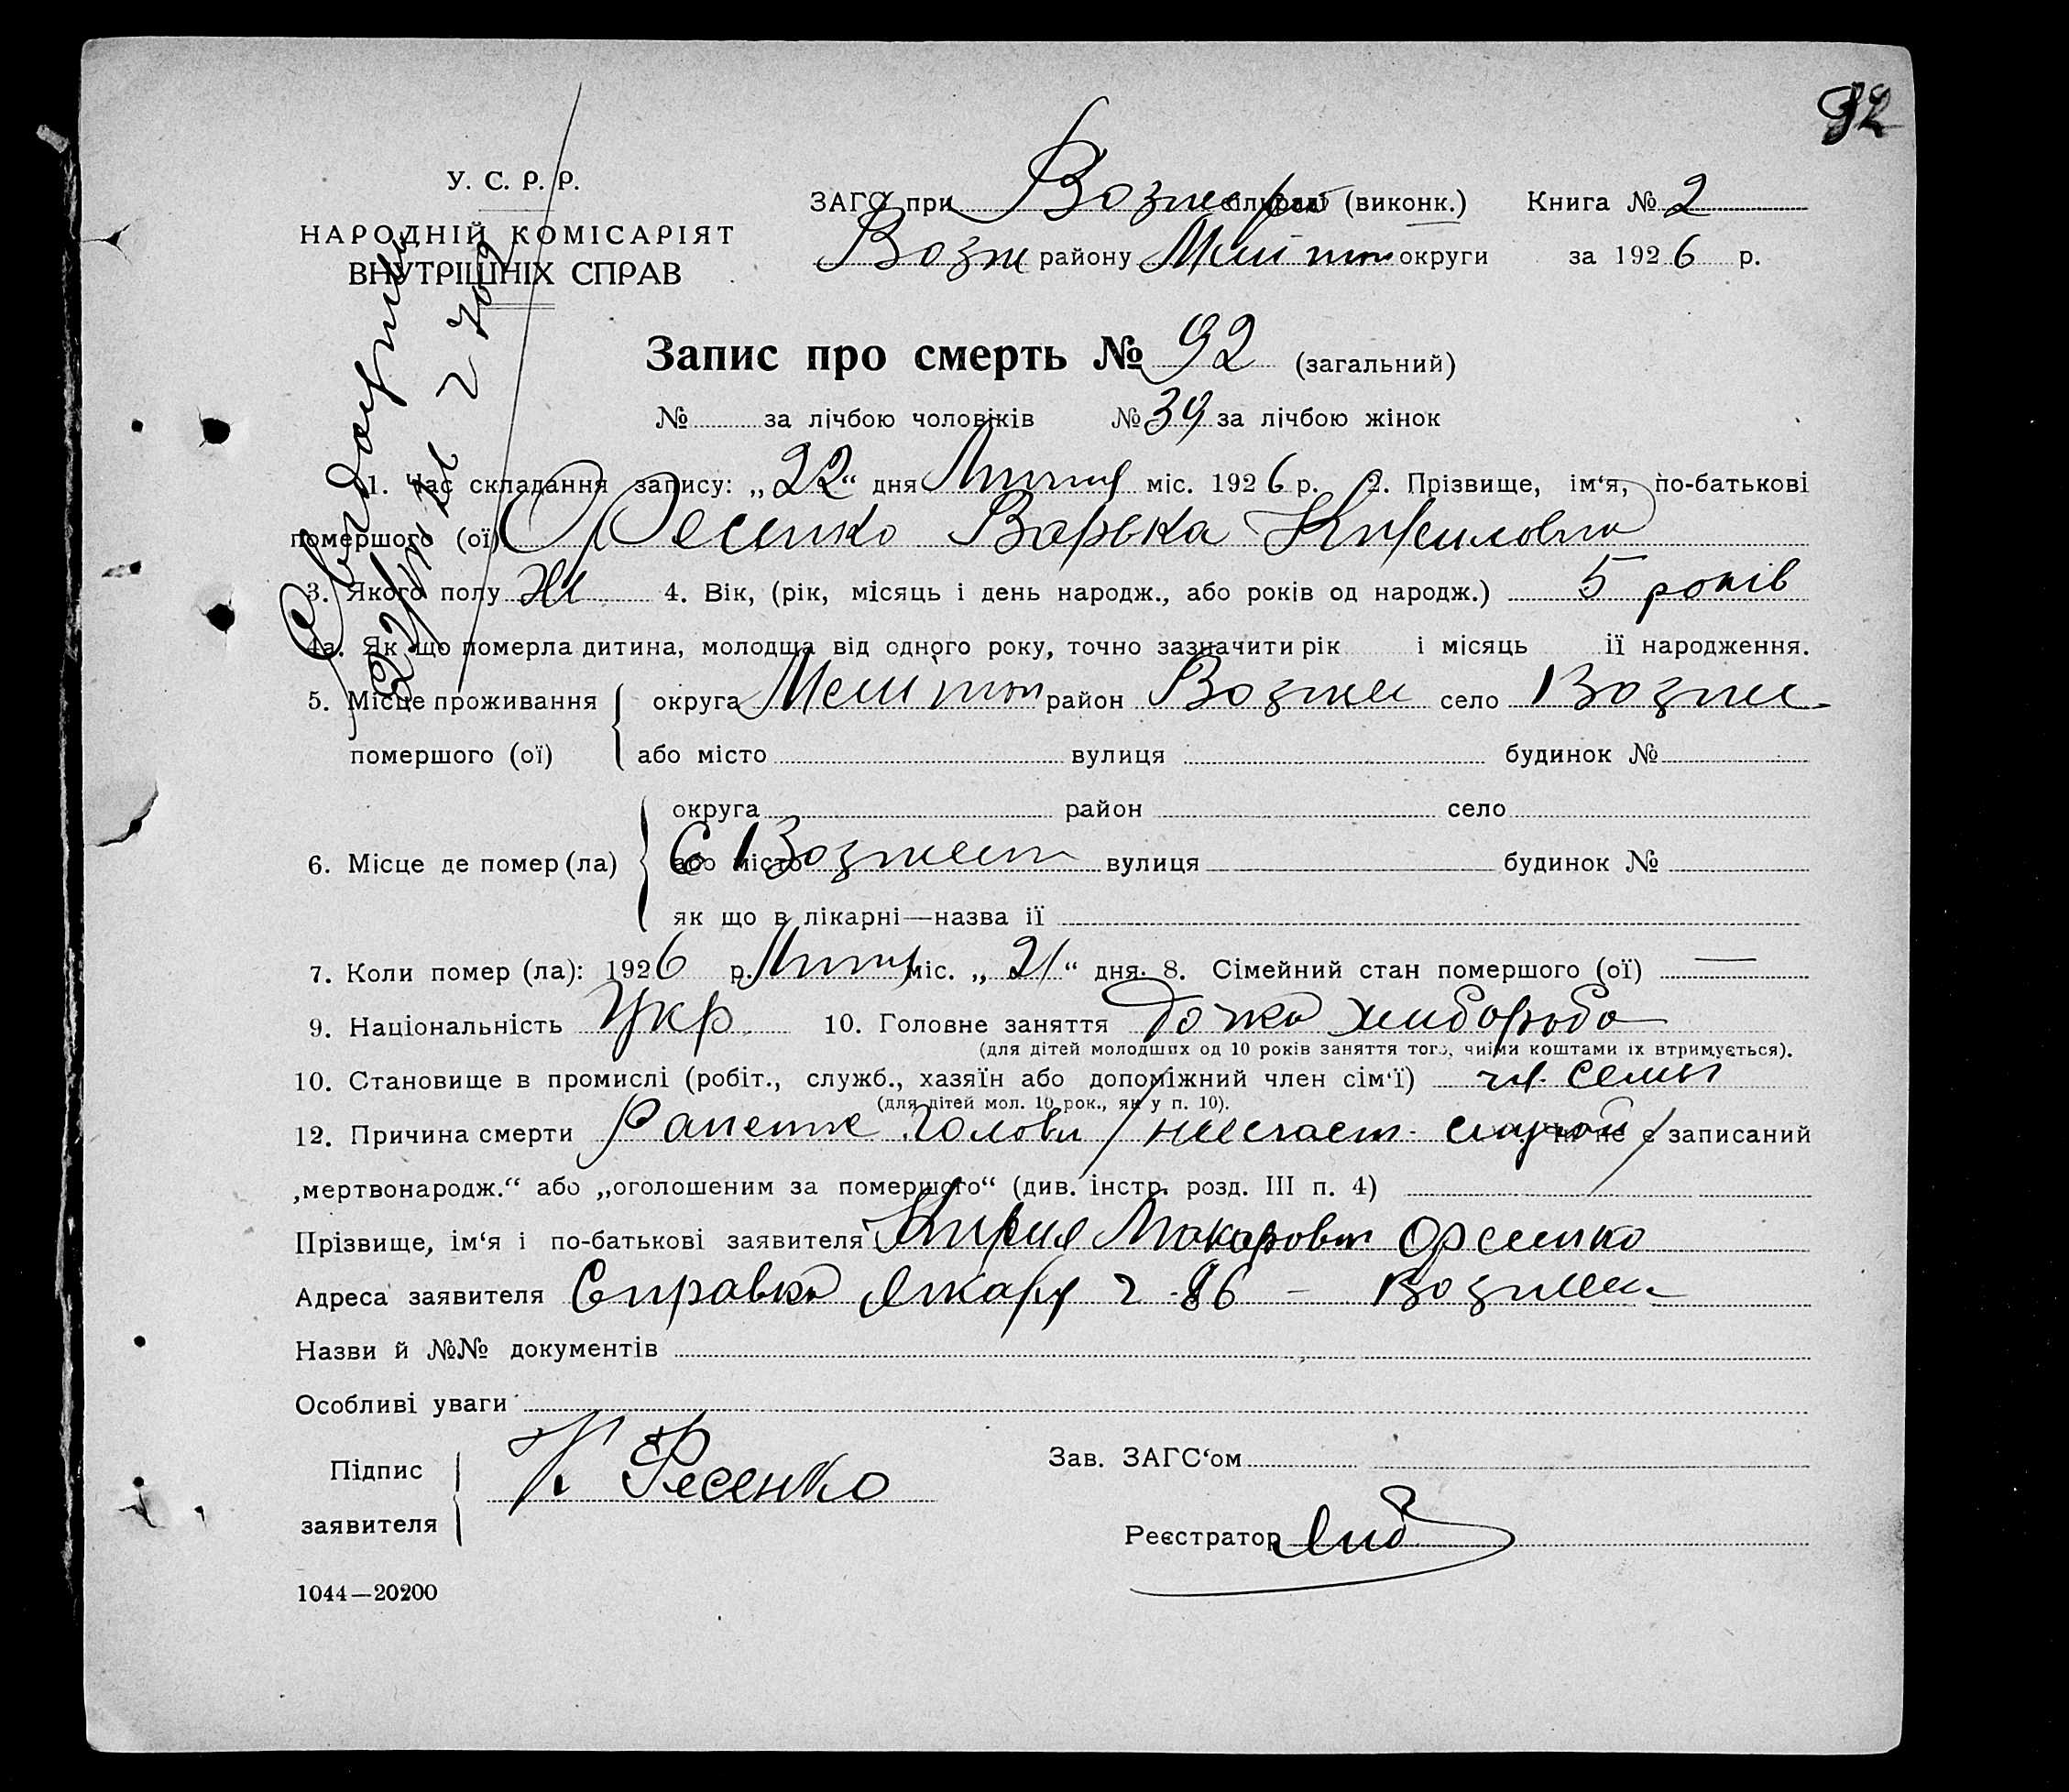 92
У. С. Р. Р.
НАРОДНІЙ КОМІСАРІЯТ
ВНУТРІШНІХ СПРАВ
ЗАГС при Возн (виконк.) Книга № 2
Возн району округи за 1926 р.
Запис про смерть № 92 (загальний)
№ за лічбою чоловіків № 39 за лічбою жінок
1. Час складання запису: „22“ дня Липня міс. 1926 р. 2. Прізвище, ім‘я, по-батькові
помершого (ої) Фесенко Варвка Кириловна
3. Якого полу Ж 4. Вік, (рік, місяць і день народж., або років од народж.) 5 років
4а. Як що померла дитина, молодша від одного року, точно зазначити рік і місяць її народження.
5. Місце проживання округа район Возне село Возне
помершого (ої) або місто вулиця будинок №
округа район село
6. Місце де помер (ла) або місто С Вознесен вулиця будинок №
як що в лікарні—назва її
7. Коли помер (ла): 1926 р. Липня міс. „21“ дня. 8. Сімейний стан помершого (ої) —
9. Національність Укр. 10. Головне заняття дочка хлибороба
(для дітей молодших од 10 років заняття того, чиїми коштами їх втримується).
10. Становище в промислі (робіт., служб., хазяїн або допоміжний член сім‘ї) чл. семьи
(для дітей мол. 10 рок., як у п. 10).
12. Причина смерти Ранение Голови /несчаст. случай/ чи не є записаний
„мертвонародж.“ або „оголошеним за помершого“ (див. інстр. розд. III п. 4)
Прізвище, ім‘я і по-батькові заявителя Кирил Макарович Фесенко
Адреса заявителя Справка Лікаря 86 – Вознесен
Назви й №№ документів
Особливі уваги
Підпис
заявителя К Фесенко
Зав. ЗАГС‘ом
Реєстратор
1044—20200